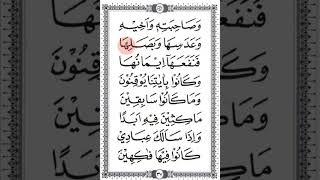 وَصَاحِبَتِهٖ وَاَخِيْهِ
وَعَدَسِهَا وَبَصَلِهَا
فَنَفَعَهَآ اِيْمَانُهَا
وَكَانُوْا بِاٰيٰتِنَا يُوْقِنُوْنَ
وَمَا كَانُوْا سَابِقِيْنَ
مَاكِثِيْنَ فِيْهِ اَبَدًا
وَاِذَا سَاَلَكَ عِبَادِيْ
كَانُوْا فِيْهَا فٰكِهِيْنَ